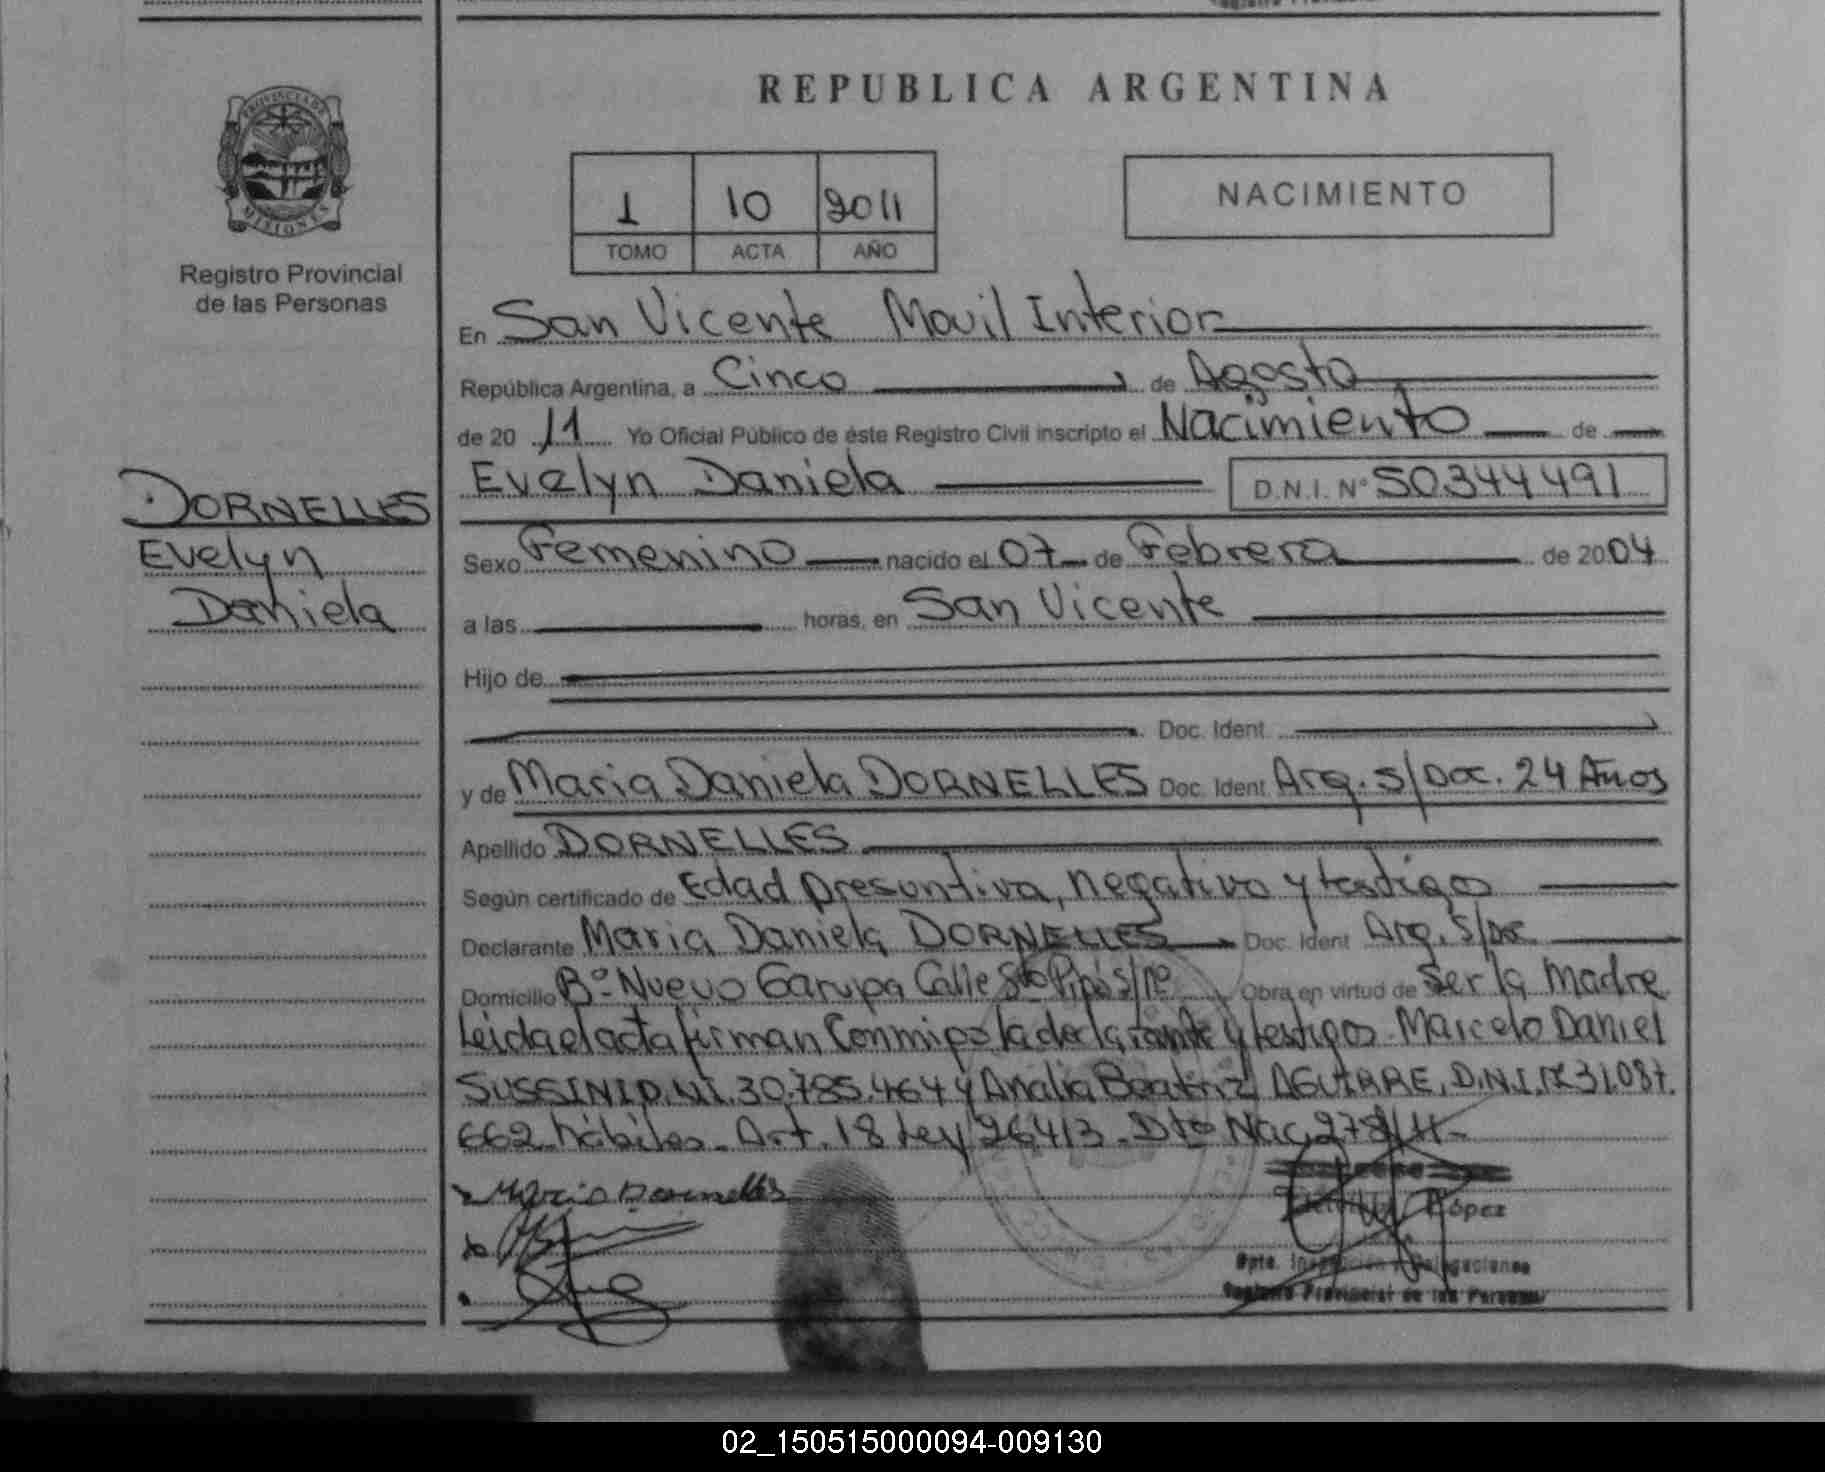 REPUBLICA ARGENTINA
PROVINCIA DE
MISIONES
Registro Provincial
de las Personas
1 10 2011
TOMO ACTA AÑO
NACIMIENTO
En San Vicente Movil Interior
República Argentina, a Cinco de Agosto
de 2011 Yo Oficial Público de éste Registro Civil inscripto el Nacimiento de
DORNELLES
Evelyn
Daniela
Evelyn Daniela D.N.I. Nº 50344491
Sexo Femenino nacido el 07 de Febrero de 2004
a las horas, en San Vicente
Hijo de
Doc. Ident.
y de Maria Daniela DORNELLES Doc. Ident. Arg. s/Doc. 24 Años
Apellido DORNELLES
Según certificado de Edad presuntiva, negativo y testigos
Declarante Maria Daniela DORNELLES Doc. Ident Arg. S/Doc
Domicilio Bº Nuevo Garupa Calle Sto Pipó s/nº Obra en virtud de Ser la Madre
Leida el acta firman Conmigo la declarante y testigos. Marcelo Daniel
SUSSINI D.NI. 30.785.464 y Analia Beatriz AGUIRRE, D.N.I. Nº 31.087.
662 hábiles. Art. 18 Ley 26413. Dto Nac 278/11
Maria Dornelles
López
Dpto. Inspección y Delegaciones
Registro Provincial de las Personas
02_150515000094-009130